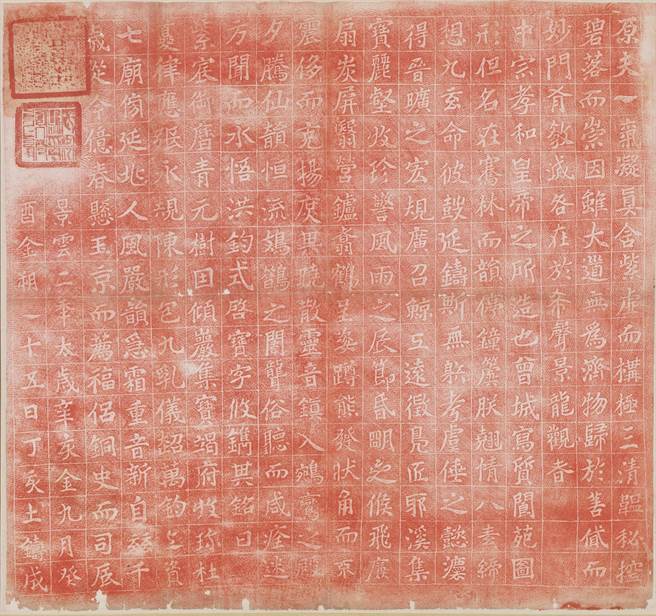 原夫一氣凝真含紫虛而構極三清韞秘控
碧落而崇因雖大道無為濟物歸於善貸而
妙門有教咎在於希聲景龍觀者
中宗孝和皇帝之所造也曾城寫質閬苑圖
形但名在騫林而韻停鐘簴朕翹情八素締
想九玄命彼鼓延鑄斯無射考虞倕之懿濾
得晉曠之宏規廣召鯨工遠徵鳧匠耶溪集
寶麗壑收珍警風雨之辰節昏明之候飛廉
扇炭屏翳營鑪翥鶴呈姿蹲熊發狀角而不
震侈而克揚庶其曉散靈音鎮入鵷鸞之殿
夕騰仙韻恒流鳷鵲之闈聳俗聽而咸痊迷
方聞而永悟洪鈞式啓寶字攸鐫其銘曰
紫宸御曆青元樹因傾巖集寶竭府收珍杜
夔律應張永規陳形包九乳儀超萬鈞上資
七廟傍延兆人風嚴韻急霜重音新自茲千
歲從今億春懸玉京而薦福侶銅史而司辰
景雲二年太歲辛亥金九月癸
酉金朔一十五日丁亥土鑄成